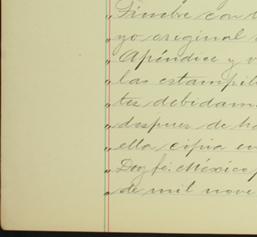 „Timbre con
„yo original
„Apéndice y v
„las estampil
„tes debidam
„despues de ha
„ella copia en
„Doy fé. México,
„de mil nove